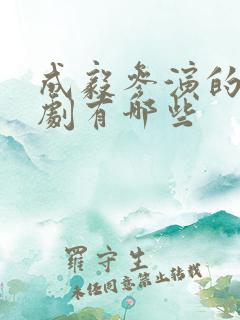 成毅參演的
劇有哪些
羅守生
未經同意禁止轉載